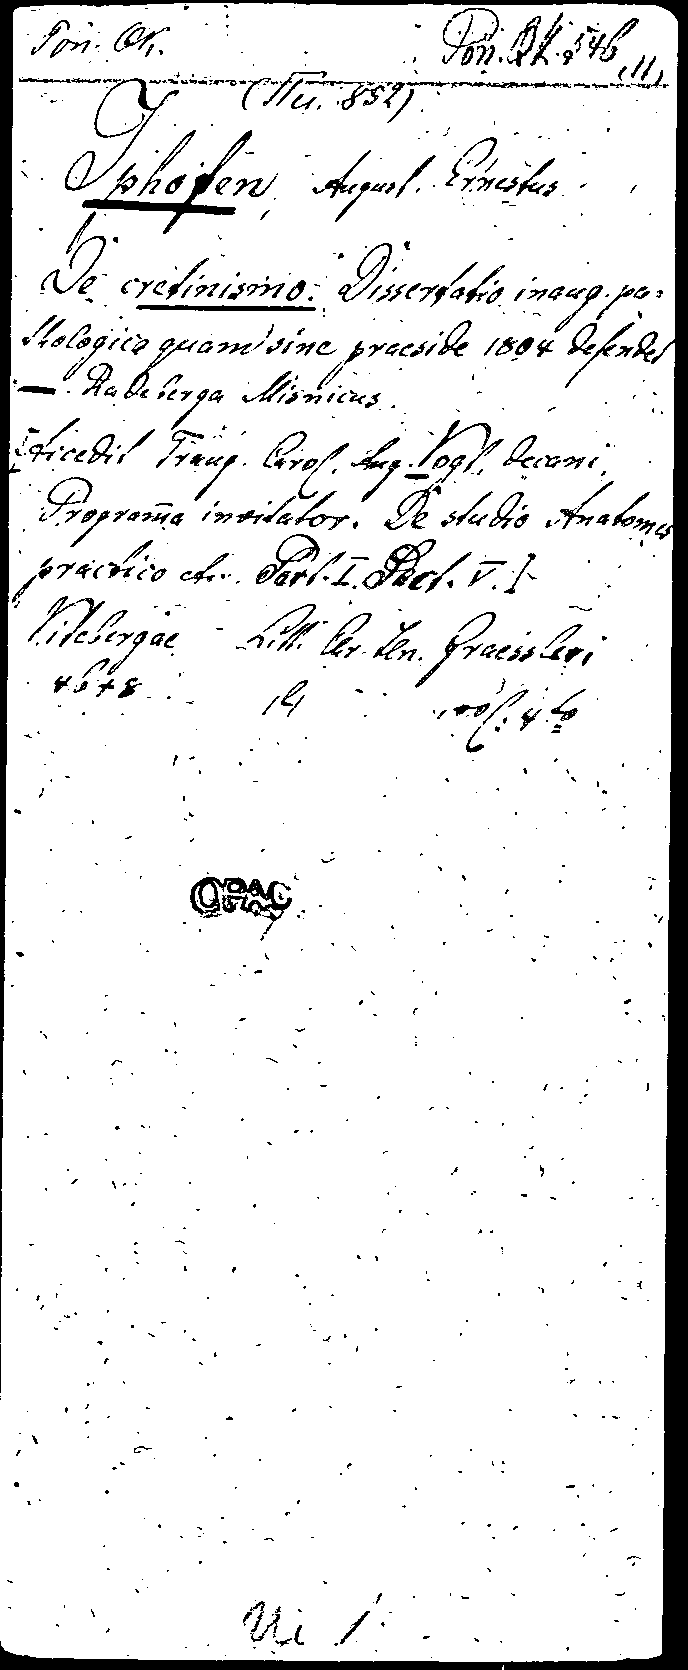 Pon. QK. Pon. QK. 546, (11)
(Nu. 852)
Iphofen, August. Ernestus
De cretinismo. Dissertatio inaug. pa-
thologica quam sine praeside 1804 defendet
—. Radeberga Misnicus.
[Accedit Traug. Carol. Aug. Vogt, decani,
Programma invitator. De studio Anatomes
practico etc. Part. I. Sect. V.]
Vitebergae Litt. Car. Hen. Graessleri
4648 4to
OPAC